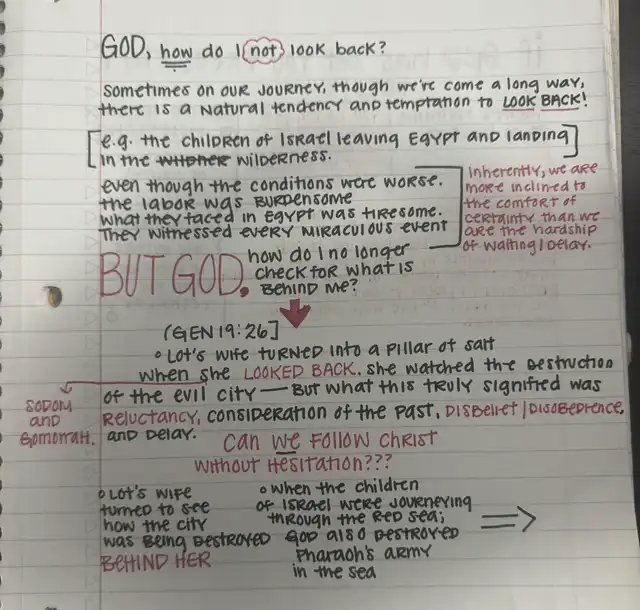 GOD, how do I not look back?
Sometimes on our journey, though we're come a long way,
there is a natural tendency and temptation to LOOK BACK!
[e.g. the children of Israel leaving Egypt and landing]
in the wilderness.
even though the conditions were worse.
the labor was burdensome
what they faced in Egypt was tiresome.
They witnessed every miraculous event
Inherently, we are
more inclined to
the comfort of
certainty than we
are the hardship
of waiting/delay.
BUT GOD,
how do I no longer
check for what is
behind me?
(GEN 19:26]
• Lot's wife turned into a pillar of salt
when she LOOKED BACK. she watched the destruction
of the evil city — But what this truly signified was
RELUCTANCY, consideration of the past, DISBELIEF/DISOBEDIENCE,
and delay.
SODOM
and
Gomorrah.
Can we follow Christ
without hesitation???
• Lot's wife
turned to see
how the city
was being destroyed
BEHIND HER
• when the children
of Israel were journeying
through the Red Sea;
God also destroyed
Pharaoh's army
in the sea